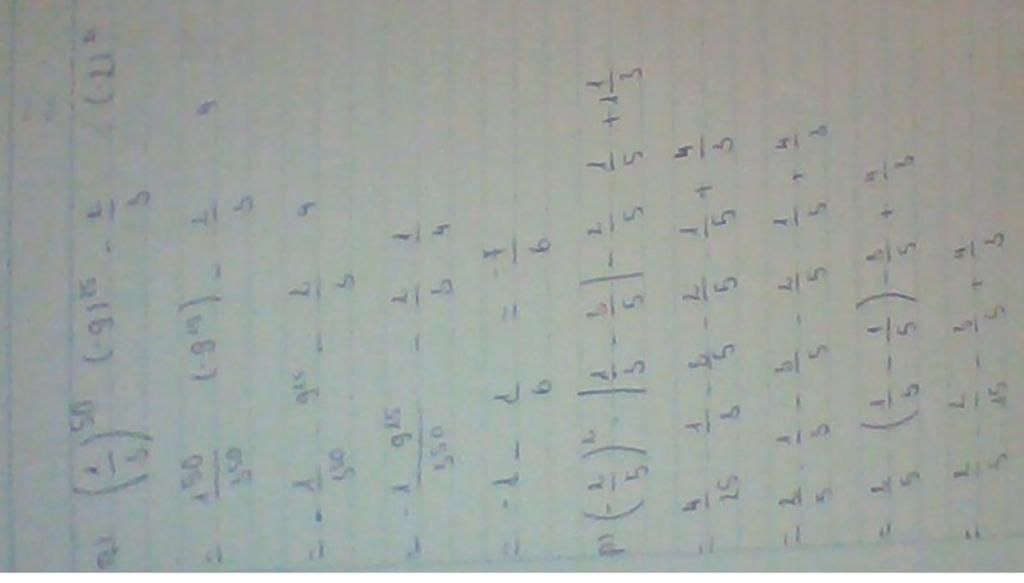 a) (1/3)^50 (-9)^25 - 2/3 (-2)^2
= 1^50/3^50 (-9^25) - 2/3 4
= - 1/3^50 9^25 - 2/3 4
= - 1 9^25/3^50 - 2/3 1/4
= - 1 - 1/6 = -7/6
(-2/5)^2 · |1/3 - 3/5| - 2/5 1/5 + 1 1/3
= 4/25 1/3 - 3/5 - 2/5 1/5 + 4/3
= 2/5 1/3 - 3/5 - 2/5 1/5 + 4/3
= 2/5 (1/3 - 1/5) - 3/5 + 4/3
= 2/5 2/15 - 3/5 + 4/3